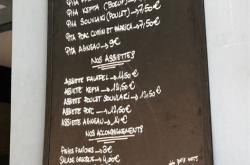 PITA KEFTA (BOEUF) 7,50€
PITA SOUVLAKI (POULET) 7,50€
PITA PORC CONFIT ET PAPRIKA 7,50€
PITA AGNEAU 9€
NOS ASSIETTES
ASSIETTE FALAFEL 11,50€
ASSIETTE KEFTA 12,50€
ASSIETTE POULET SOUVLAKI 12,50€
ASSIETTE PORC 12,50€
ASSIETTE AGNEAU 14€
NOS ACCOMPAGNEMENTS
FRITES FRAÎCHES 3€
SALADE GRECQUE 4,00€